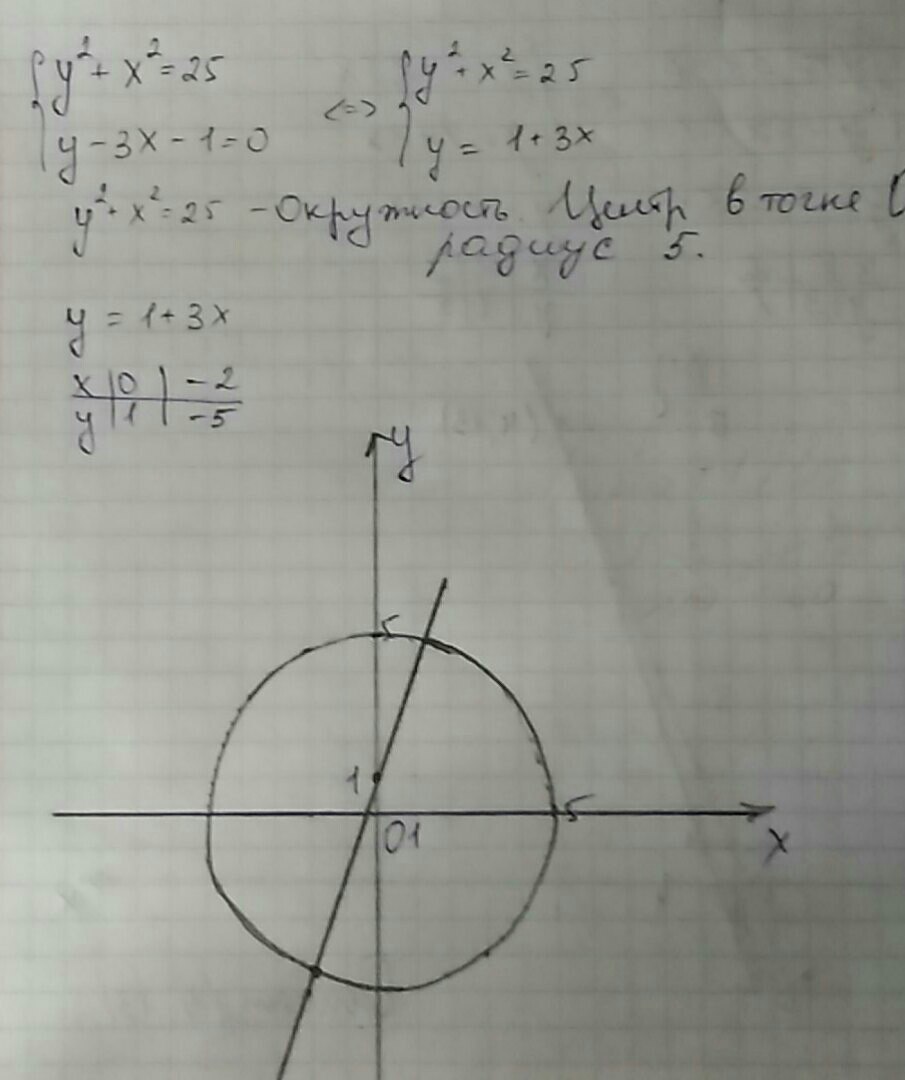 { y² + x² = 25 <=> { y² + x² = 25
{ y - 3x - 1 = 0 { y = 1 + 3x
y² + x² = 25 - Окружность. Центр в точке (
радиус 5.
y = 1 + 3x
x | 0 | -2
y | 1 | -5
y
5
1
5
0 1
x